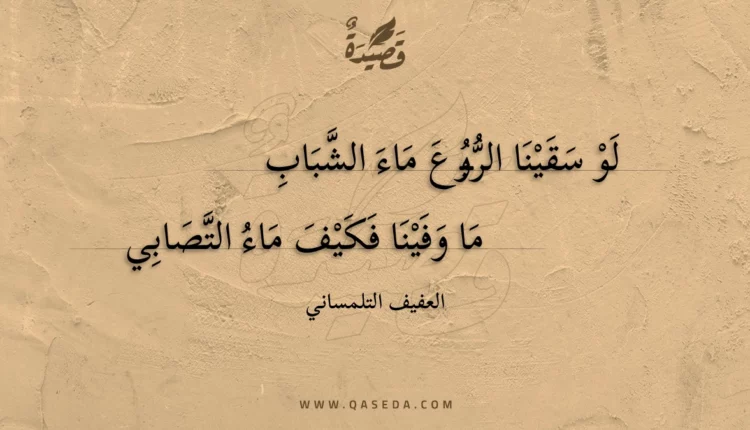 قَصِيْدَةٌ
لَوْ سَقَيْنَا الرُّبُوعَ مَاءَ الشَّبَابِ
مَا وَفَيْنَا فَكَيْفَ مَاءُ التَّصَابِي
العفيف التلمساني
WWW.QASEDA.COM